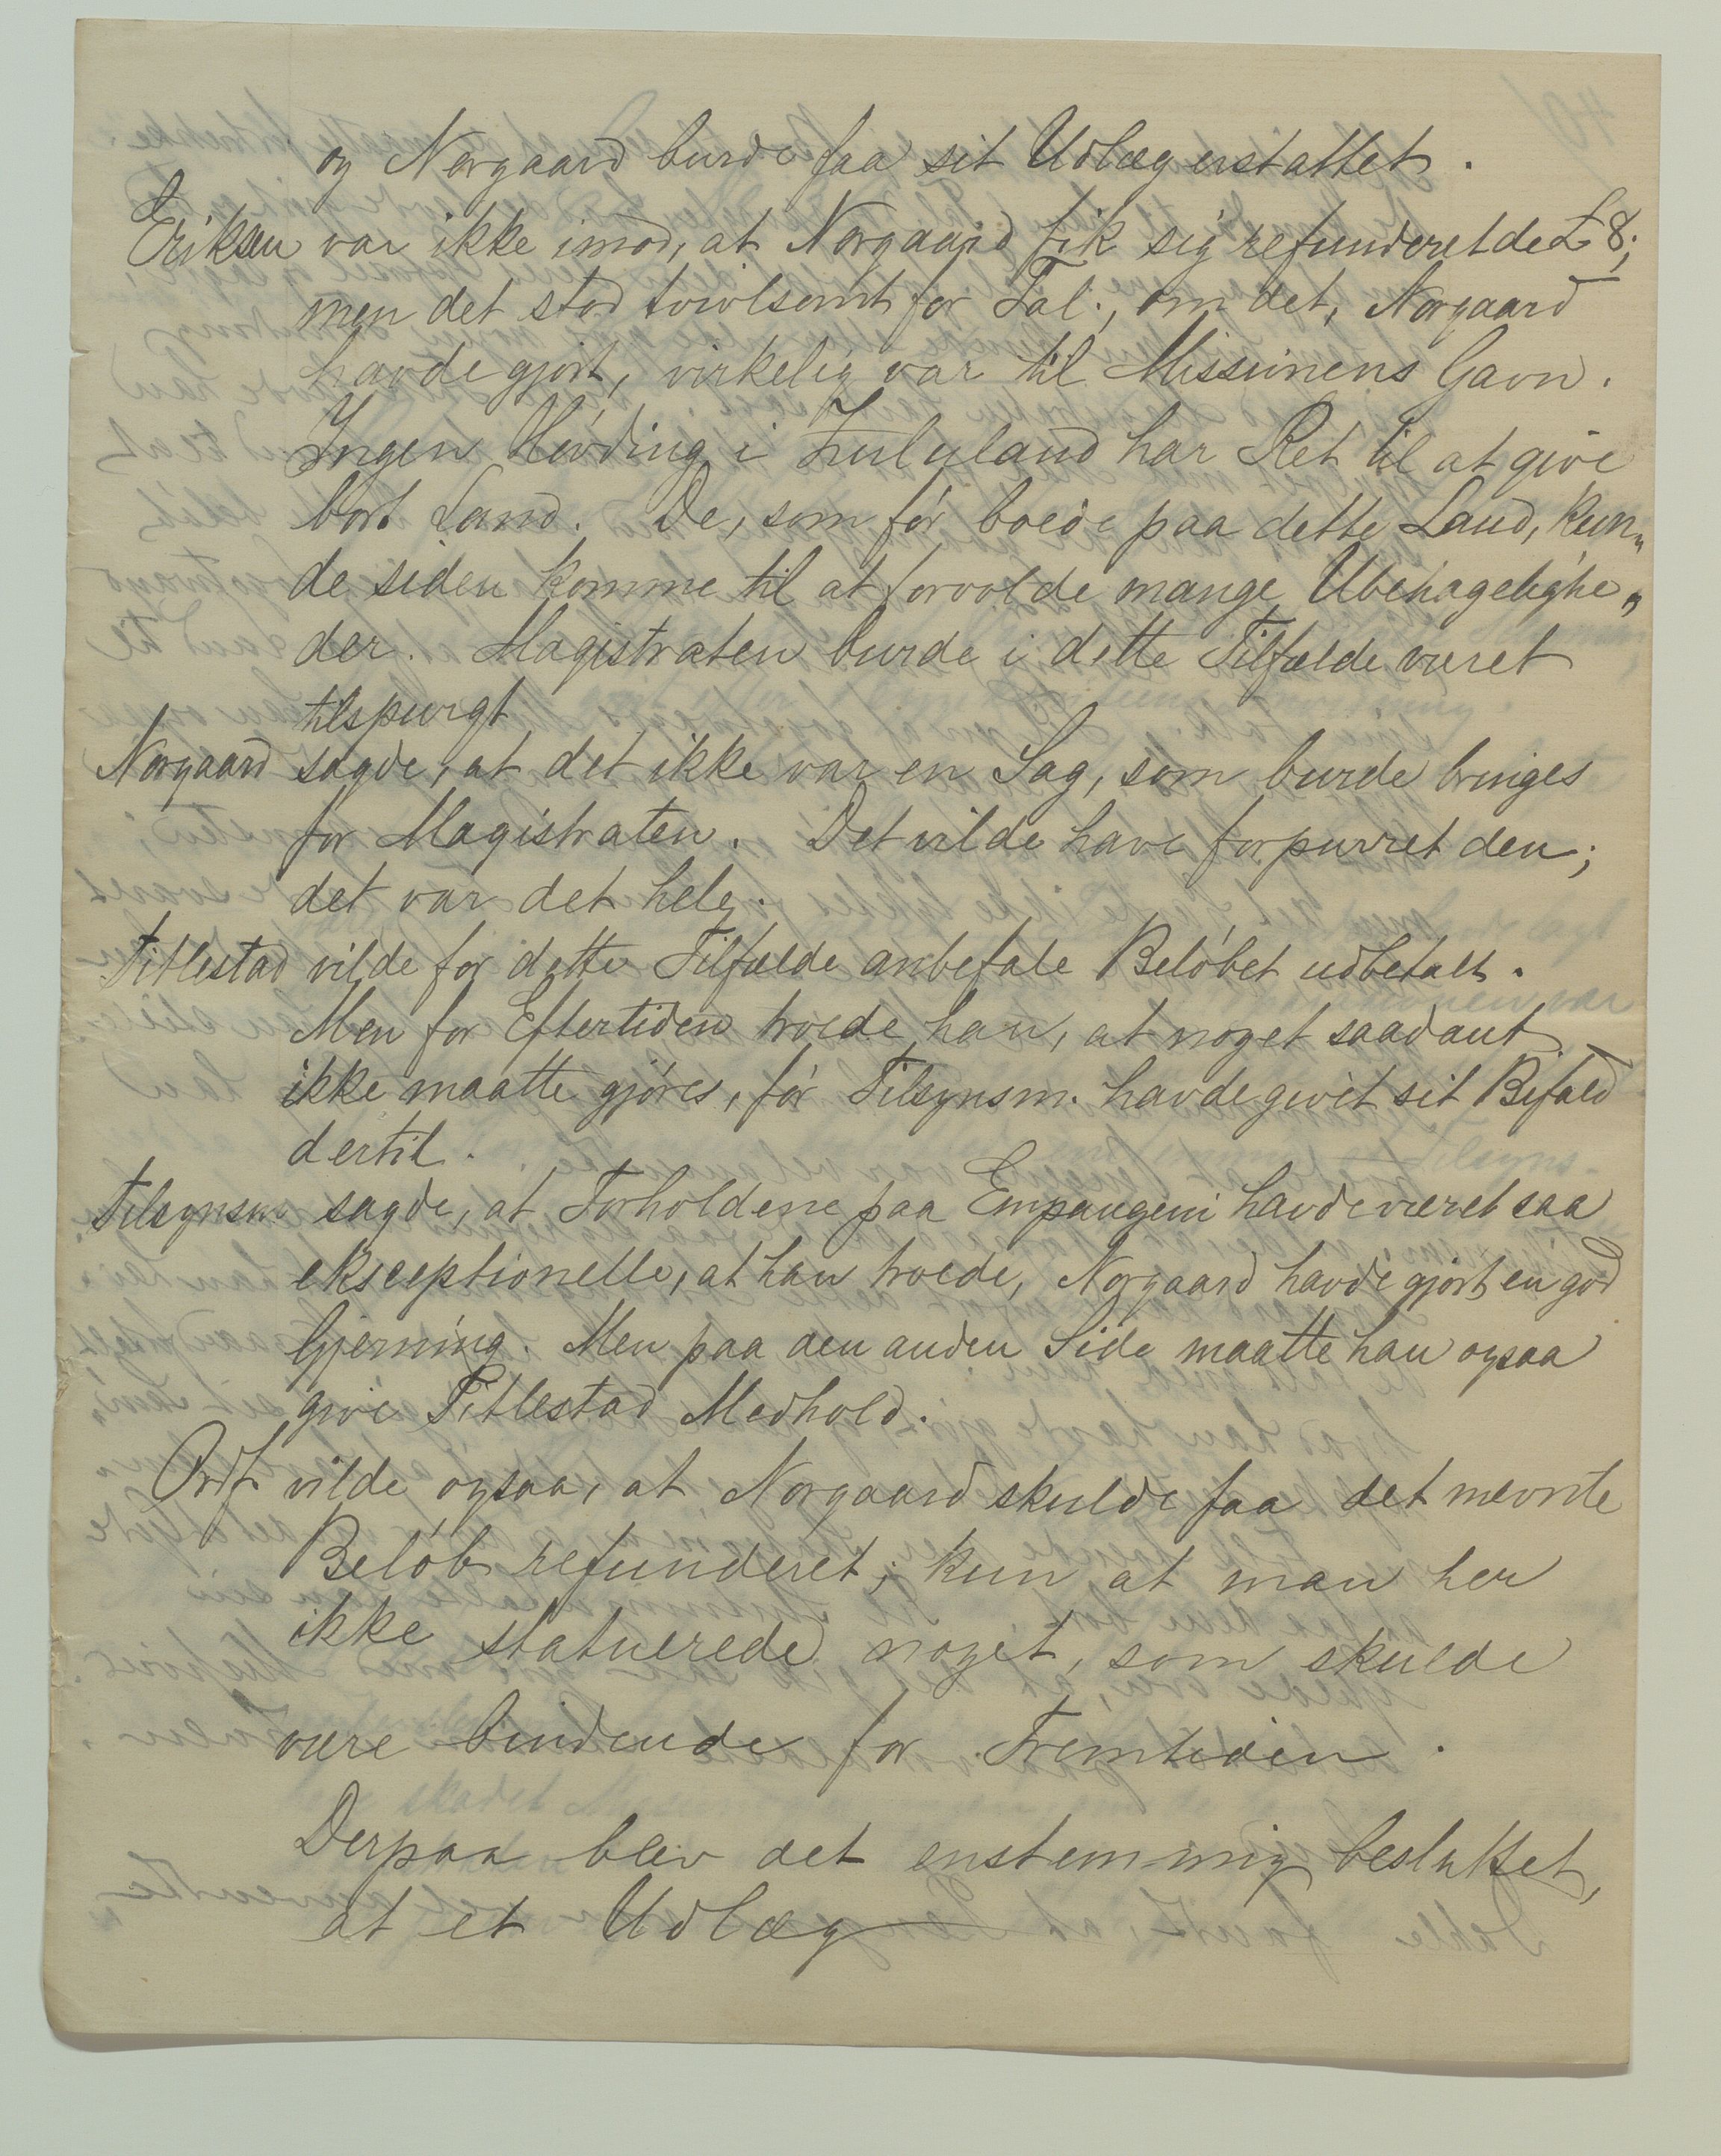 og Norgaard burde faa sit Udlæg erstattet.
Eriksen var ikke imod, at Norgaard fik sig refunderet de £ 8;
men det stod tvivlsomt for Tal., om det, Norgaard
havde gjort, virkelig var til Missionens Gavn.
Ingen Høvding i Zululand har Ret til at give
bort Land. De, som før boede paa dette Land, kun„
de siden komme til at forvolde mange Ubehagelighe„
der. Magistraten burde i dette Tilfælde været
tilspurgt
Norgaard sagde, at det ikke var en Sag, som burde bringes
for Magistraten. Det vilde have forpurret den;
det var det hele.
Titlestad vilde for dette Tilfælde anbefale Beløbet udbetalt.
Men for Eftertiden troede han, at noget saadant
ikke maatte gjøres, før Tilsynsm. havde givet sit Bifald
dertil.
Tilsynsm. sagde, at Forholdene paa Empangeni havde været saa
eksceptionelle, at han troede, Norgaard havde gjort en god
Gjerning. Men paa den anden Side maatte han ogsaa
give Titlestad Medhold.
Ordf. vilde ogsaa, at Norgaard skulde faa det nævnte
Beløb refunderet; kun at man her
ikke statuerede noget, som skulde
være bindende for Fremtiden.
Derpaa blev det enstemmig besluttet,
at et Udlæg